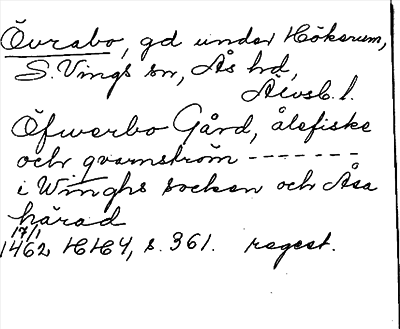 Övrabo, gd under Hökerum,
S. Vings sn, Ås hd,
Älvsb. l.
Öfwerbo Gård, ålefiske
och qvarnström - - - - - - -
i Winghs socken och Åsa
härad
17/1
1462 HH4, s. 361. regest.